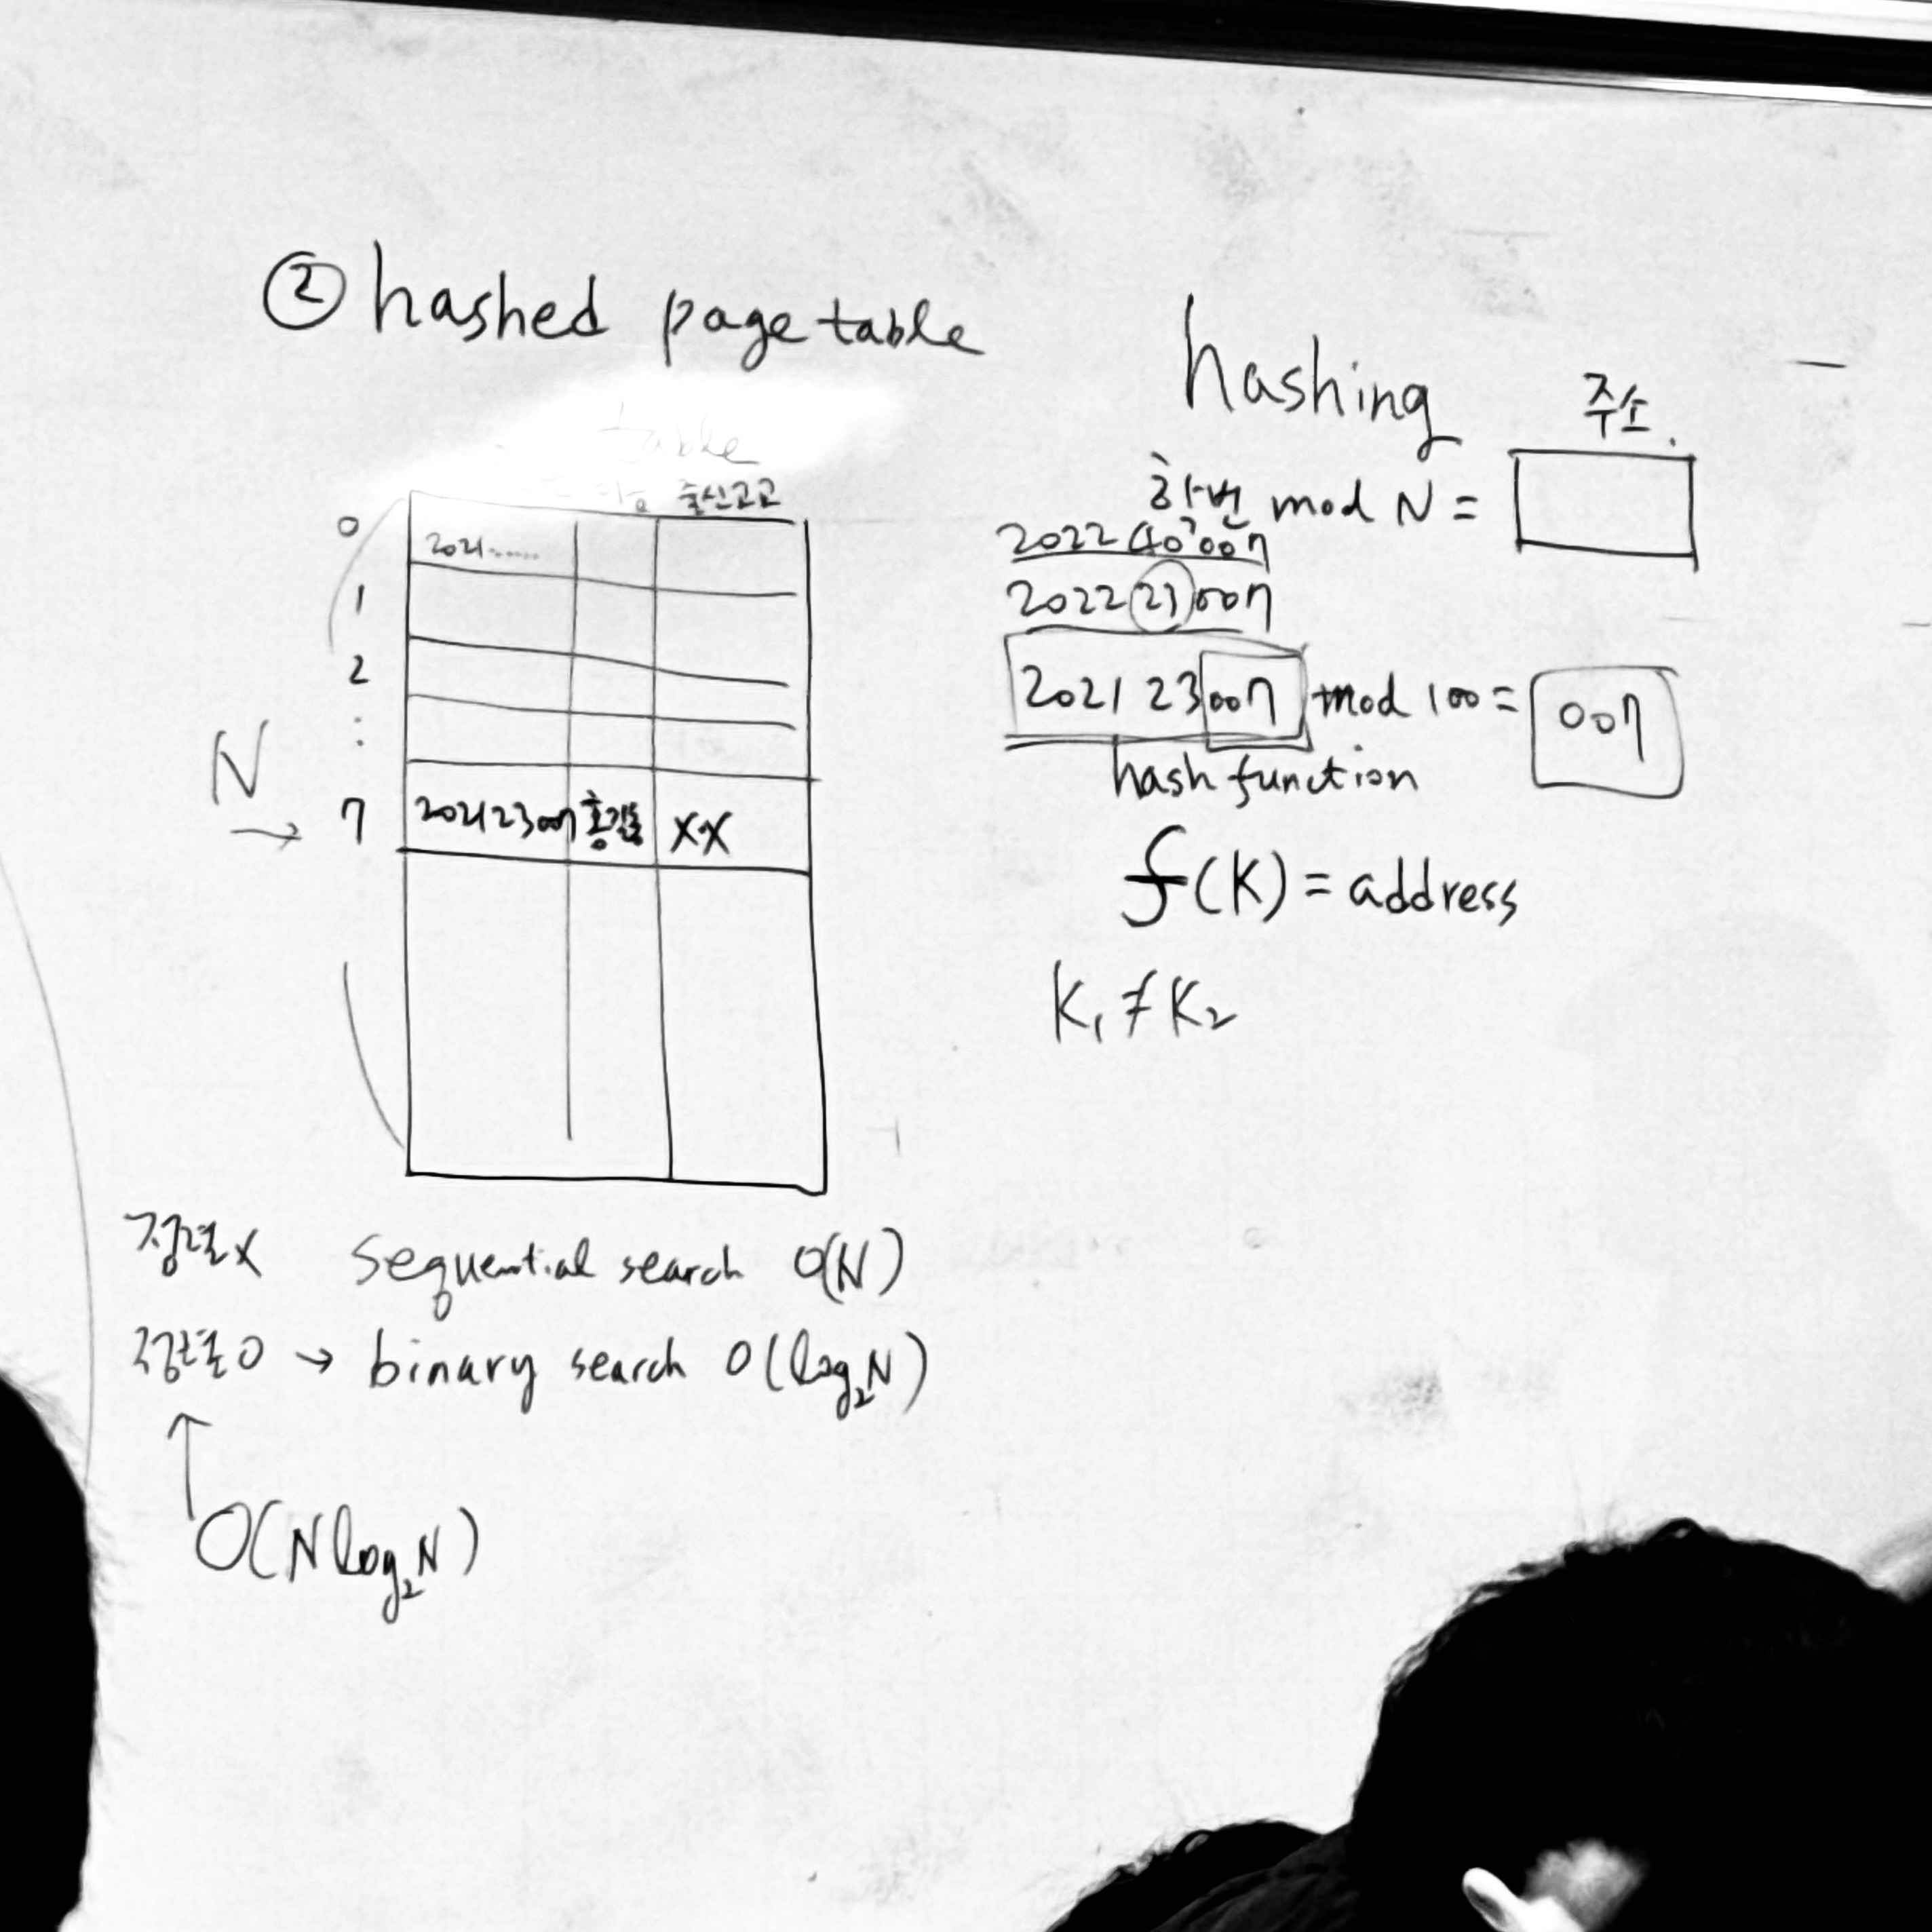 ② hashed page table
table
출신고교
0 2021......
1
2
:
N
→ 7 202123007 홍길동 XX
정렬X sequential search O(N)
정렬O → binary search O(log₂N)
↑
O(N log₂N)
hashing
주소.
학번 mod N =
202240007
202221007
202123007 mod 100 = 007
hash function
f(K) = address
K₁ ≠ K₂